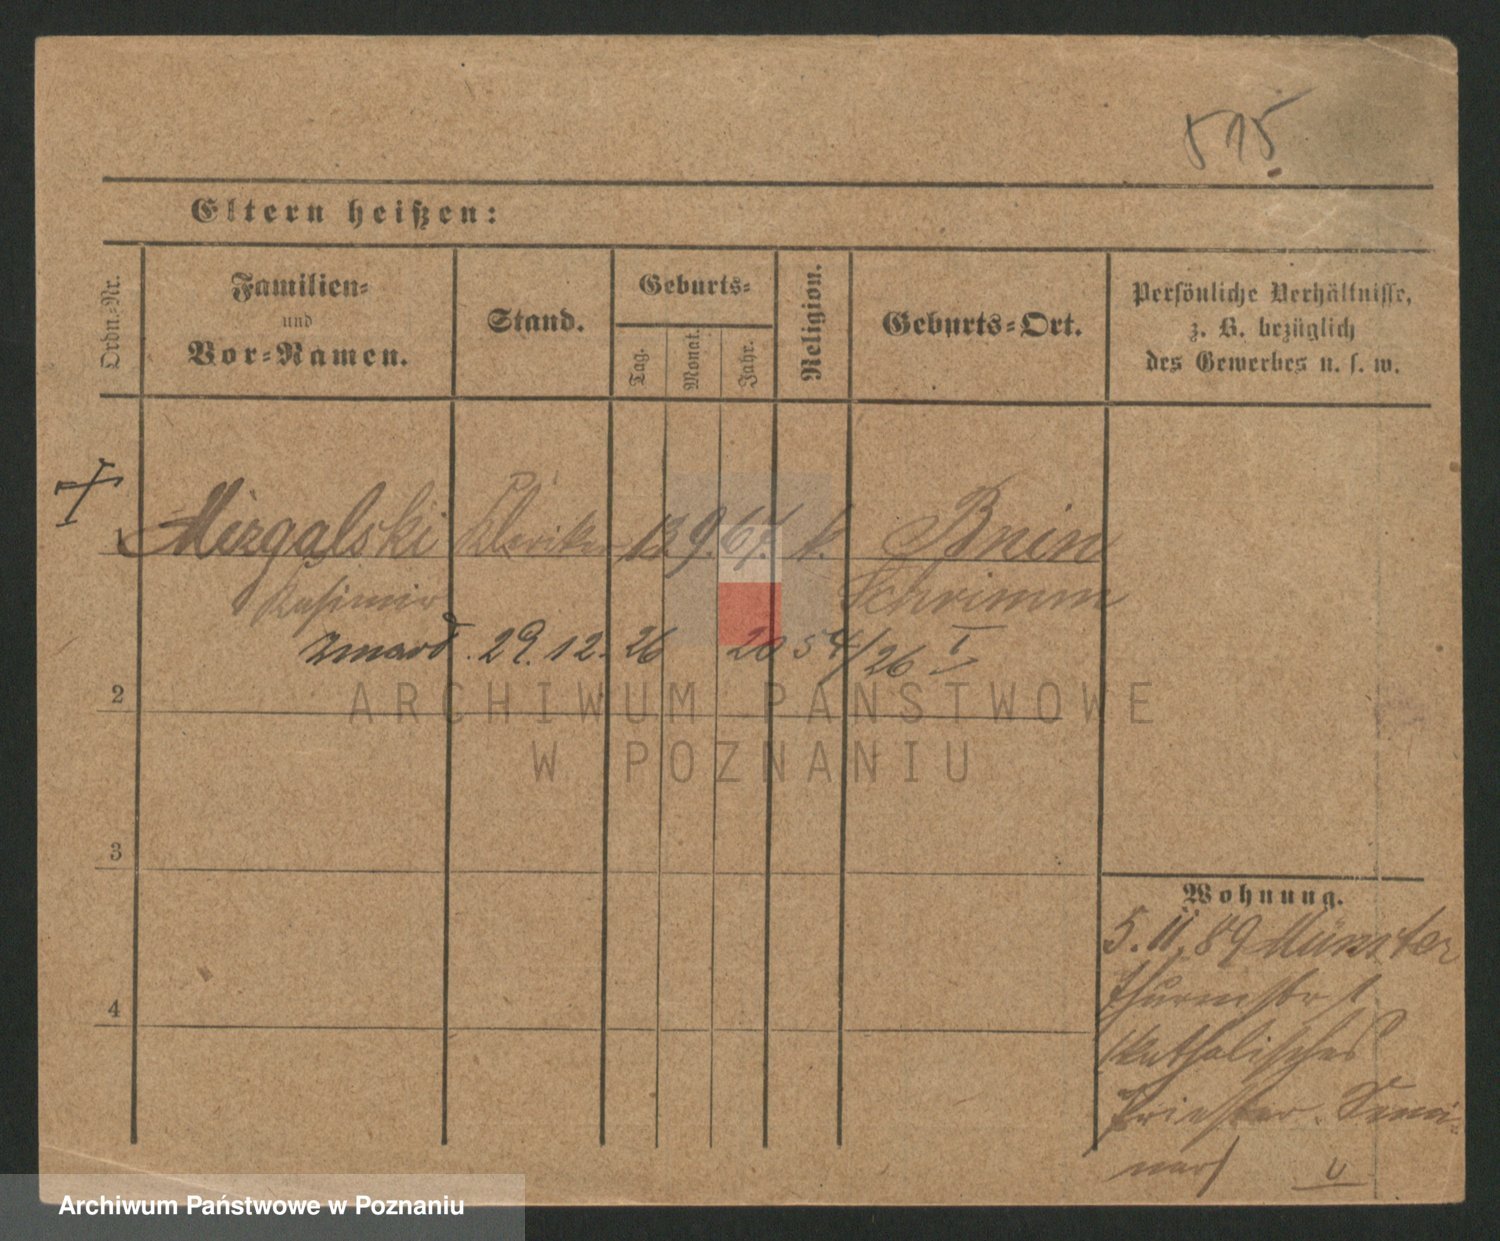 515
Eltern heißen:
Ordn.-Nr.
Familien-
und
Vor-Namen.
Stand.
Geburts-
Tag.
Monat.
Jahr.
Religion.
Geburts-Ort.
Persönliche Verhältnisse,
z. B. bezüglich
des Gewerbes u. s. w.
1 Mizgalski Kleriker 13 9. 67. k. Bnin
Kasimir Schrimm
zmarł. 29. 12. 26 2054/26 I
2
ARCHIWUM PAŃSTWOWE
W POZNANIU
3
Wohnung.
5. 11. 89 Münster
Thurmstr 1
4
Katholisches
Priester-Semi-
nar
Archiwum Państwowe w Poznaniu